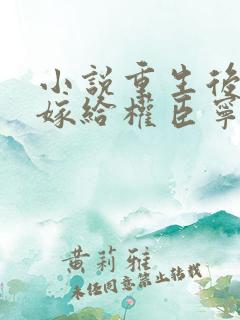 小說重生後
嫁給權臣寧
黃莉雅
未经同意禁止转载